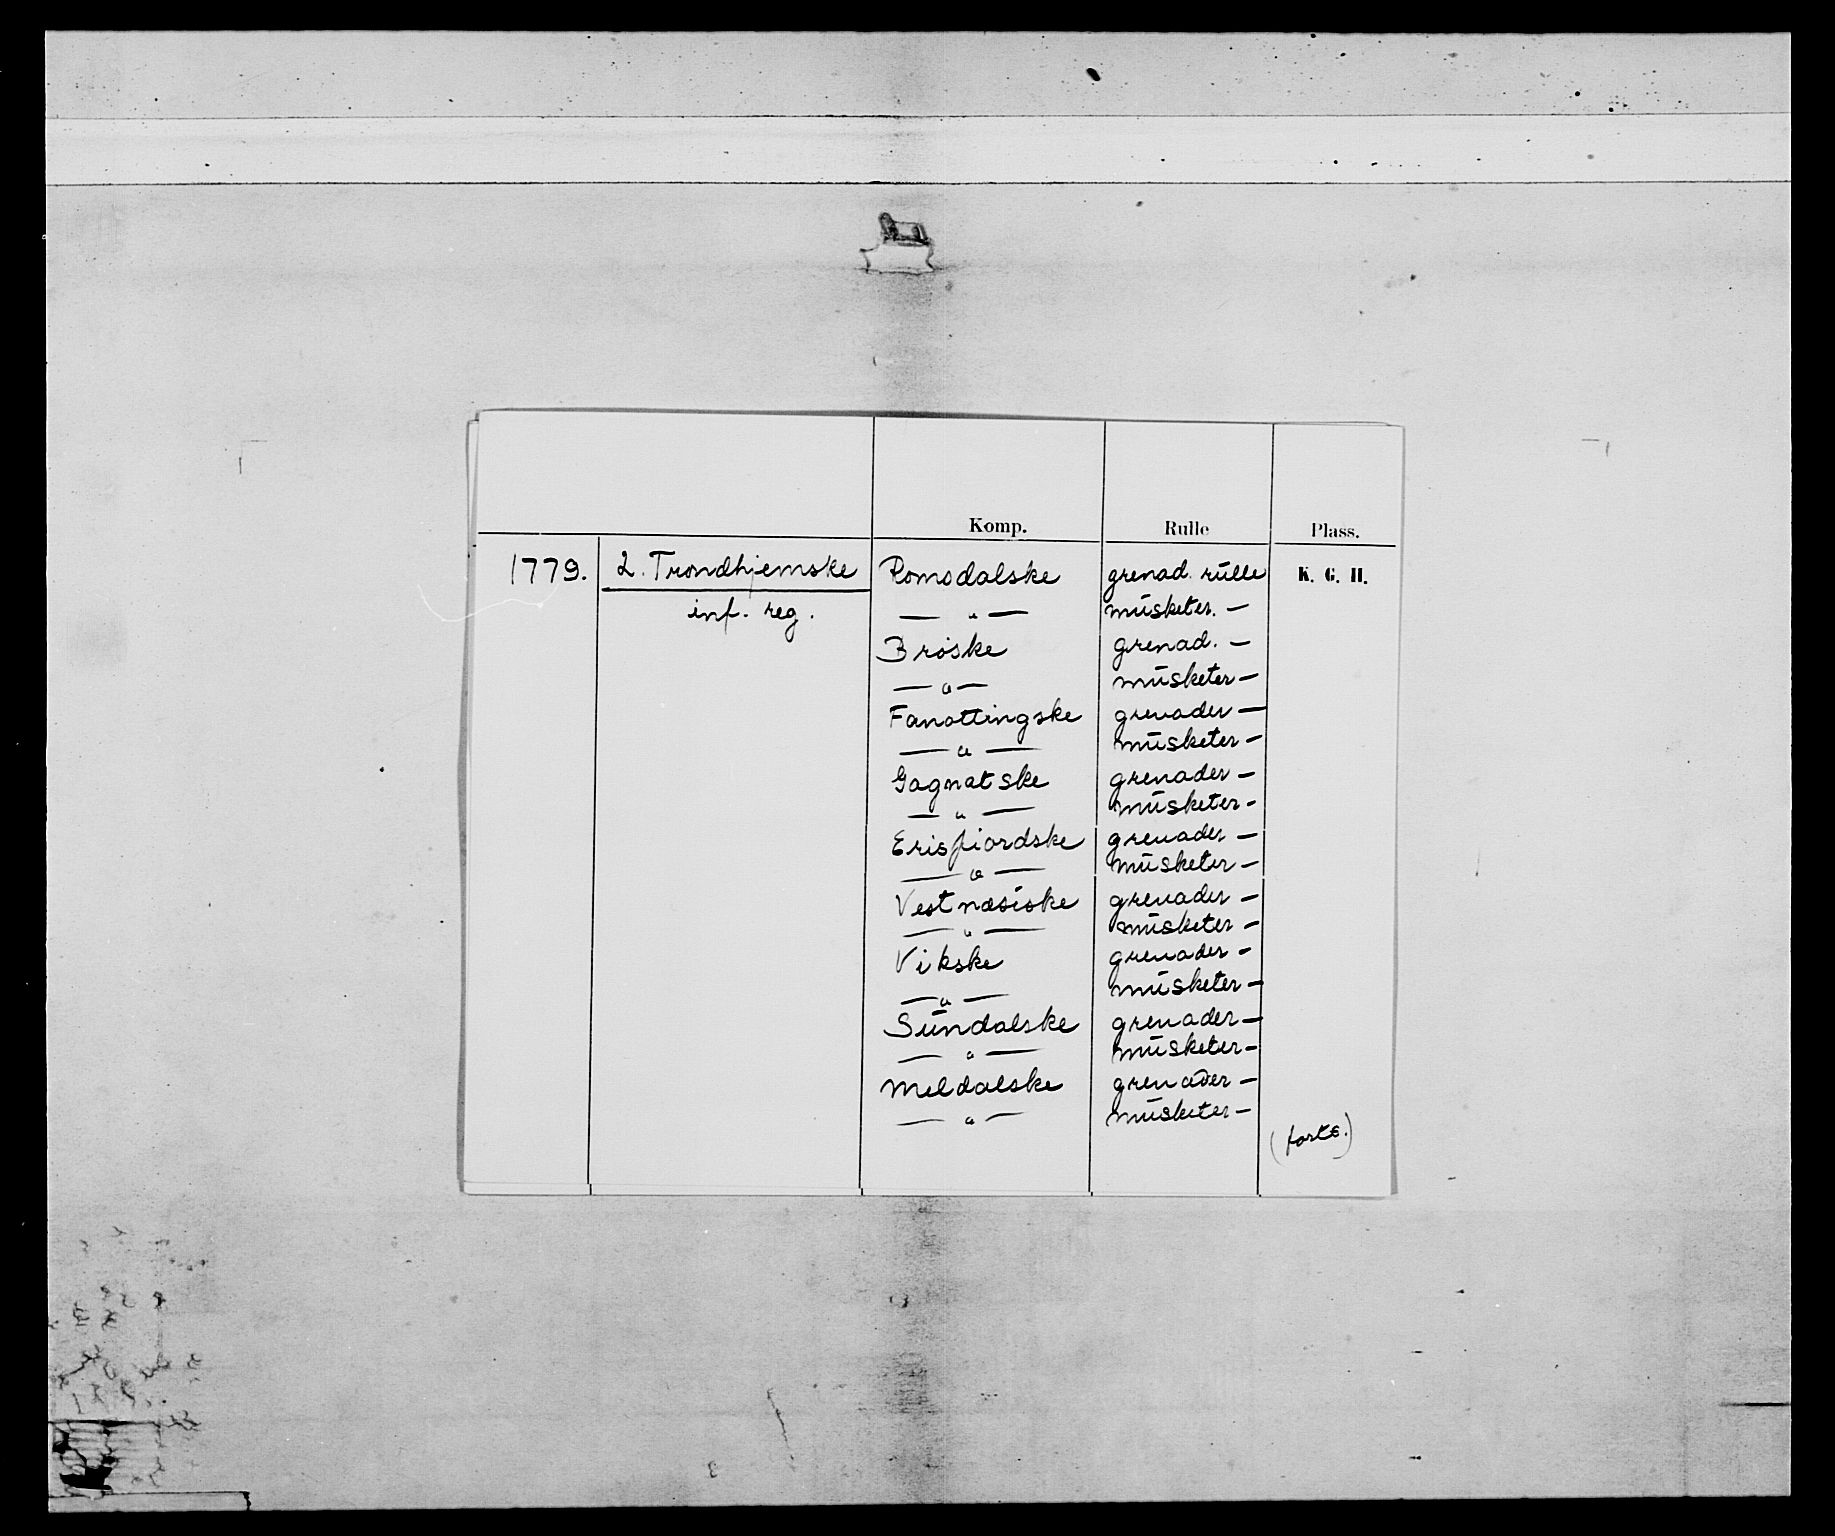 Komp. Rulle Plass.
1779. 2. Trondhjemske Romsdalske grenad. rulle K. G. H.
inf. reg. — " — musketer. —
Brøske grenad. —
— " — musketer —
Fanottingske grenader —
— " — musketer —
Gagnatske grenader —
— " — musketer —
Erisfiordske grenader —
— " — musketer —
Vestnæsiske grenader —
— " — musketer —
Vikske grenader —
— " — musketer —
Sundalske grenader —
— " — musketer —
Meldalske grenader —
— " — musketer —
(forts.)